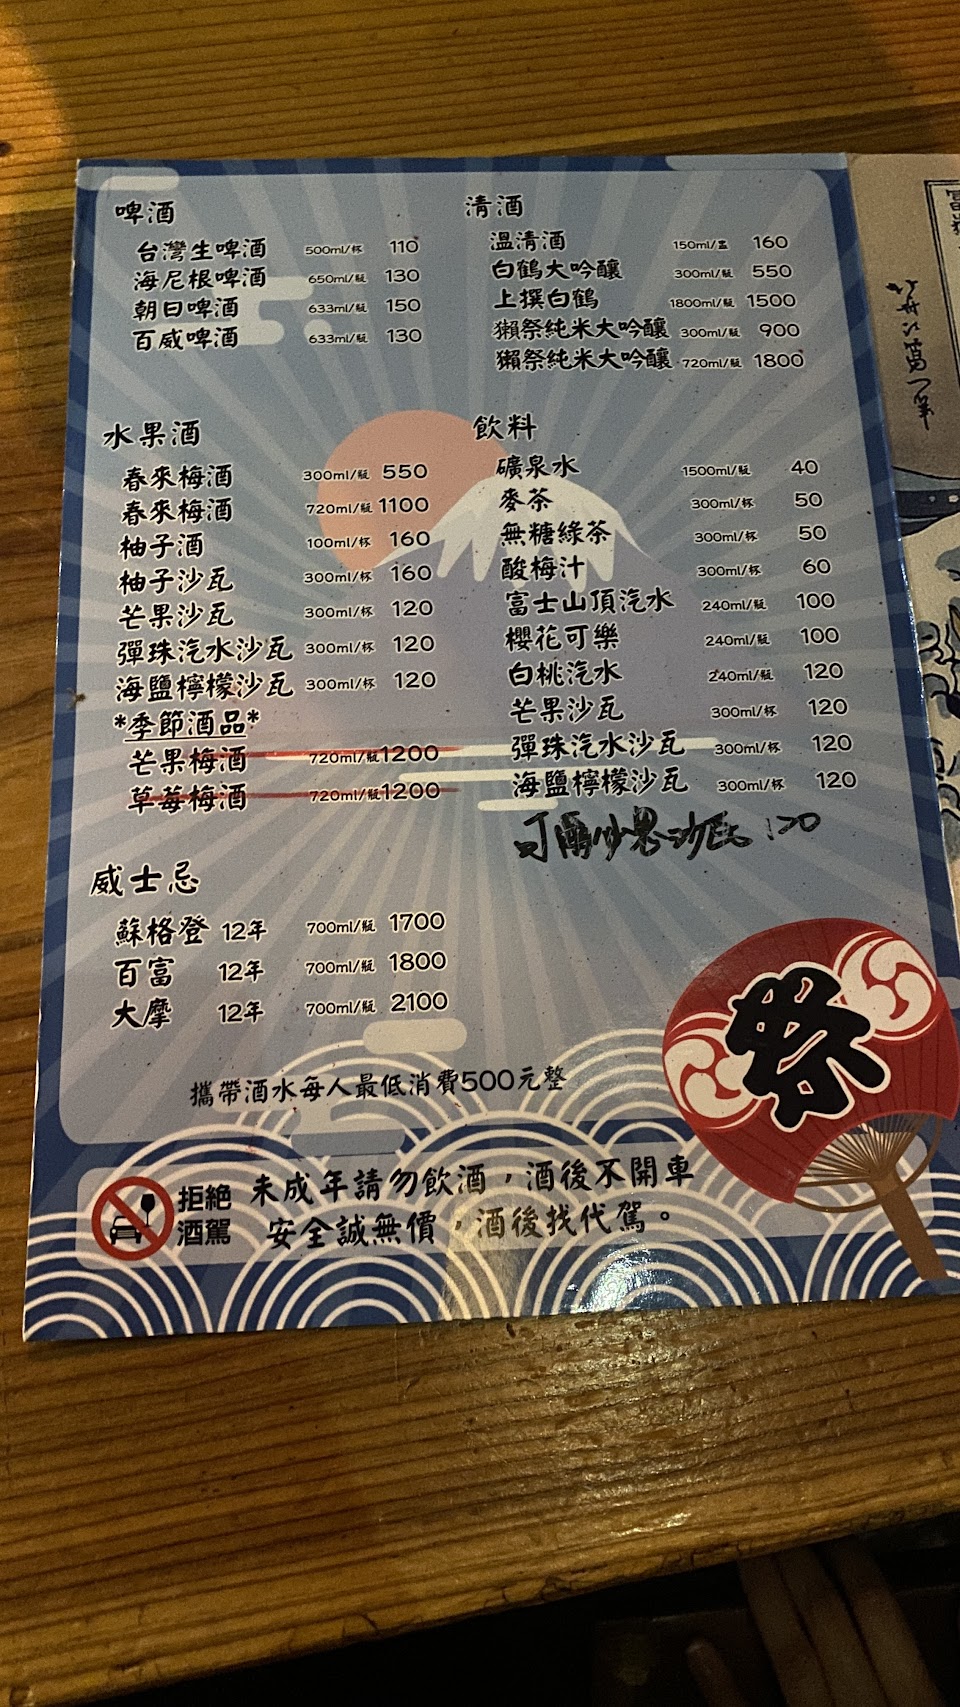 啤酒
台灣生啤酒 500ml/杯 110
海尼根啤酒 650ml/瓶 130
朝日啤酒 633ml/瓶 150
百威啤酒 633ml/瓶 130
清酒
溫清酒 150ml/盅 160
白鶴大吟釀 300ml/瓶 550
上撰白鶴 1800ml/瓶 1500
獺祭純米大吟釀 300ml/瓶 900
獺祭純米大吟釀 720ml/瓶 1800
水果酒
春來梅酒 300ml/瓶 550
春來梅酒 720ml/瓶 1100
柚子酒 100ml/杯 160
柚子沙瓦 300ml/杯 160
芒果沙瓦 300ml/杯 120
彈珠汽水沙瓦 300ml/杯 120
海鹽檸檬沙瓦 300ml/杯 120
*季節酒品*
芒果梅酒 720ml/瓶 1200
草莓梅酒 720ml/瓶 1200
飲料
礦泉水 1500ml/瓶 40
麥茶 300ml/杯 50
無糖綠茶 300ml/杯 50
酸梅汁 300ml/杯 60
富士山頂汽水 240ml/瓶 100
櫻花可樂 240ml/瓶 100
白桃汽水 240ml/瓶 120
芒果沙瓦 300ml/杯 120
彈珠汽水沙瓦 300ml/杯 120
海鹽檸檬沙瓦 300ml/杯 120
可爾必思沙瓦 120
威士忌
蘇格登 12年 700ml/瓶 1700
百富 12年 700ml/瓶 1800
大摩 12年 700ml/瓶 2100
攜帶酒水每人最低消費500元整
祭
拒絕
酒駕
未成年請勿飲酒，酒後不開車
安全誠無價，酒後找代駕。